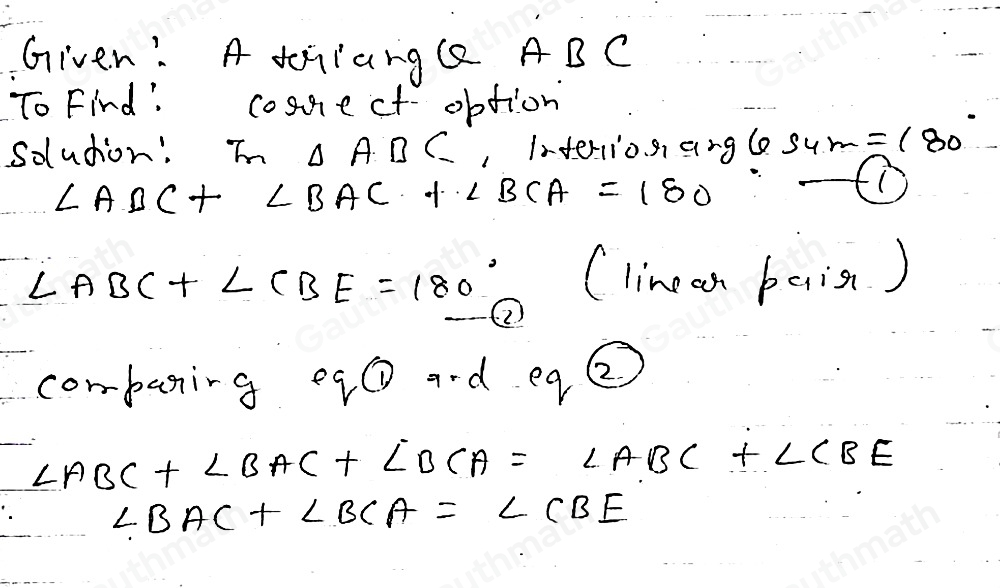 Given: A triangle ABC
To Find: correct option
Solution: In Δ ABC, Interior angle sum = 180°
∠ABC + ∠BAC + ∠BCA = 180° —①
∠ABC + ∠CBE = 180° (linear pair)
—②
comparing eq① and eq②
∠ABC + ∠BAC + ∠BCA = ∠ABC + ∠CBE
∴ ∠BAC + ∠BCA = ∠CBE